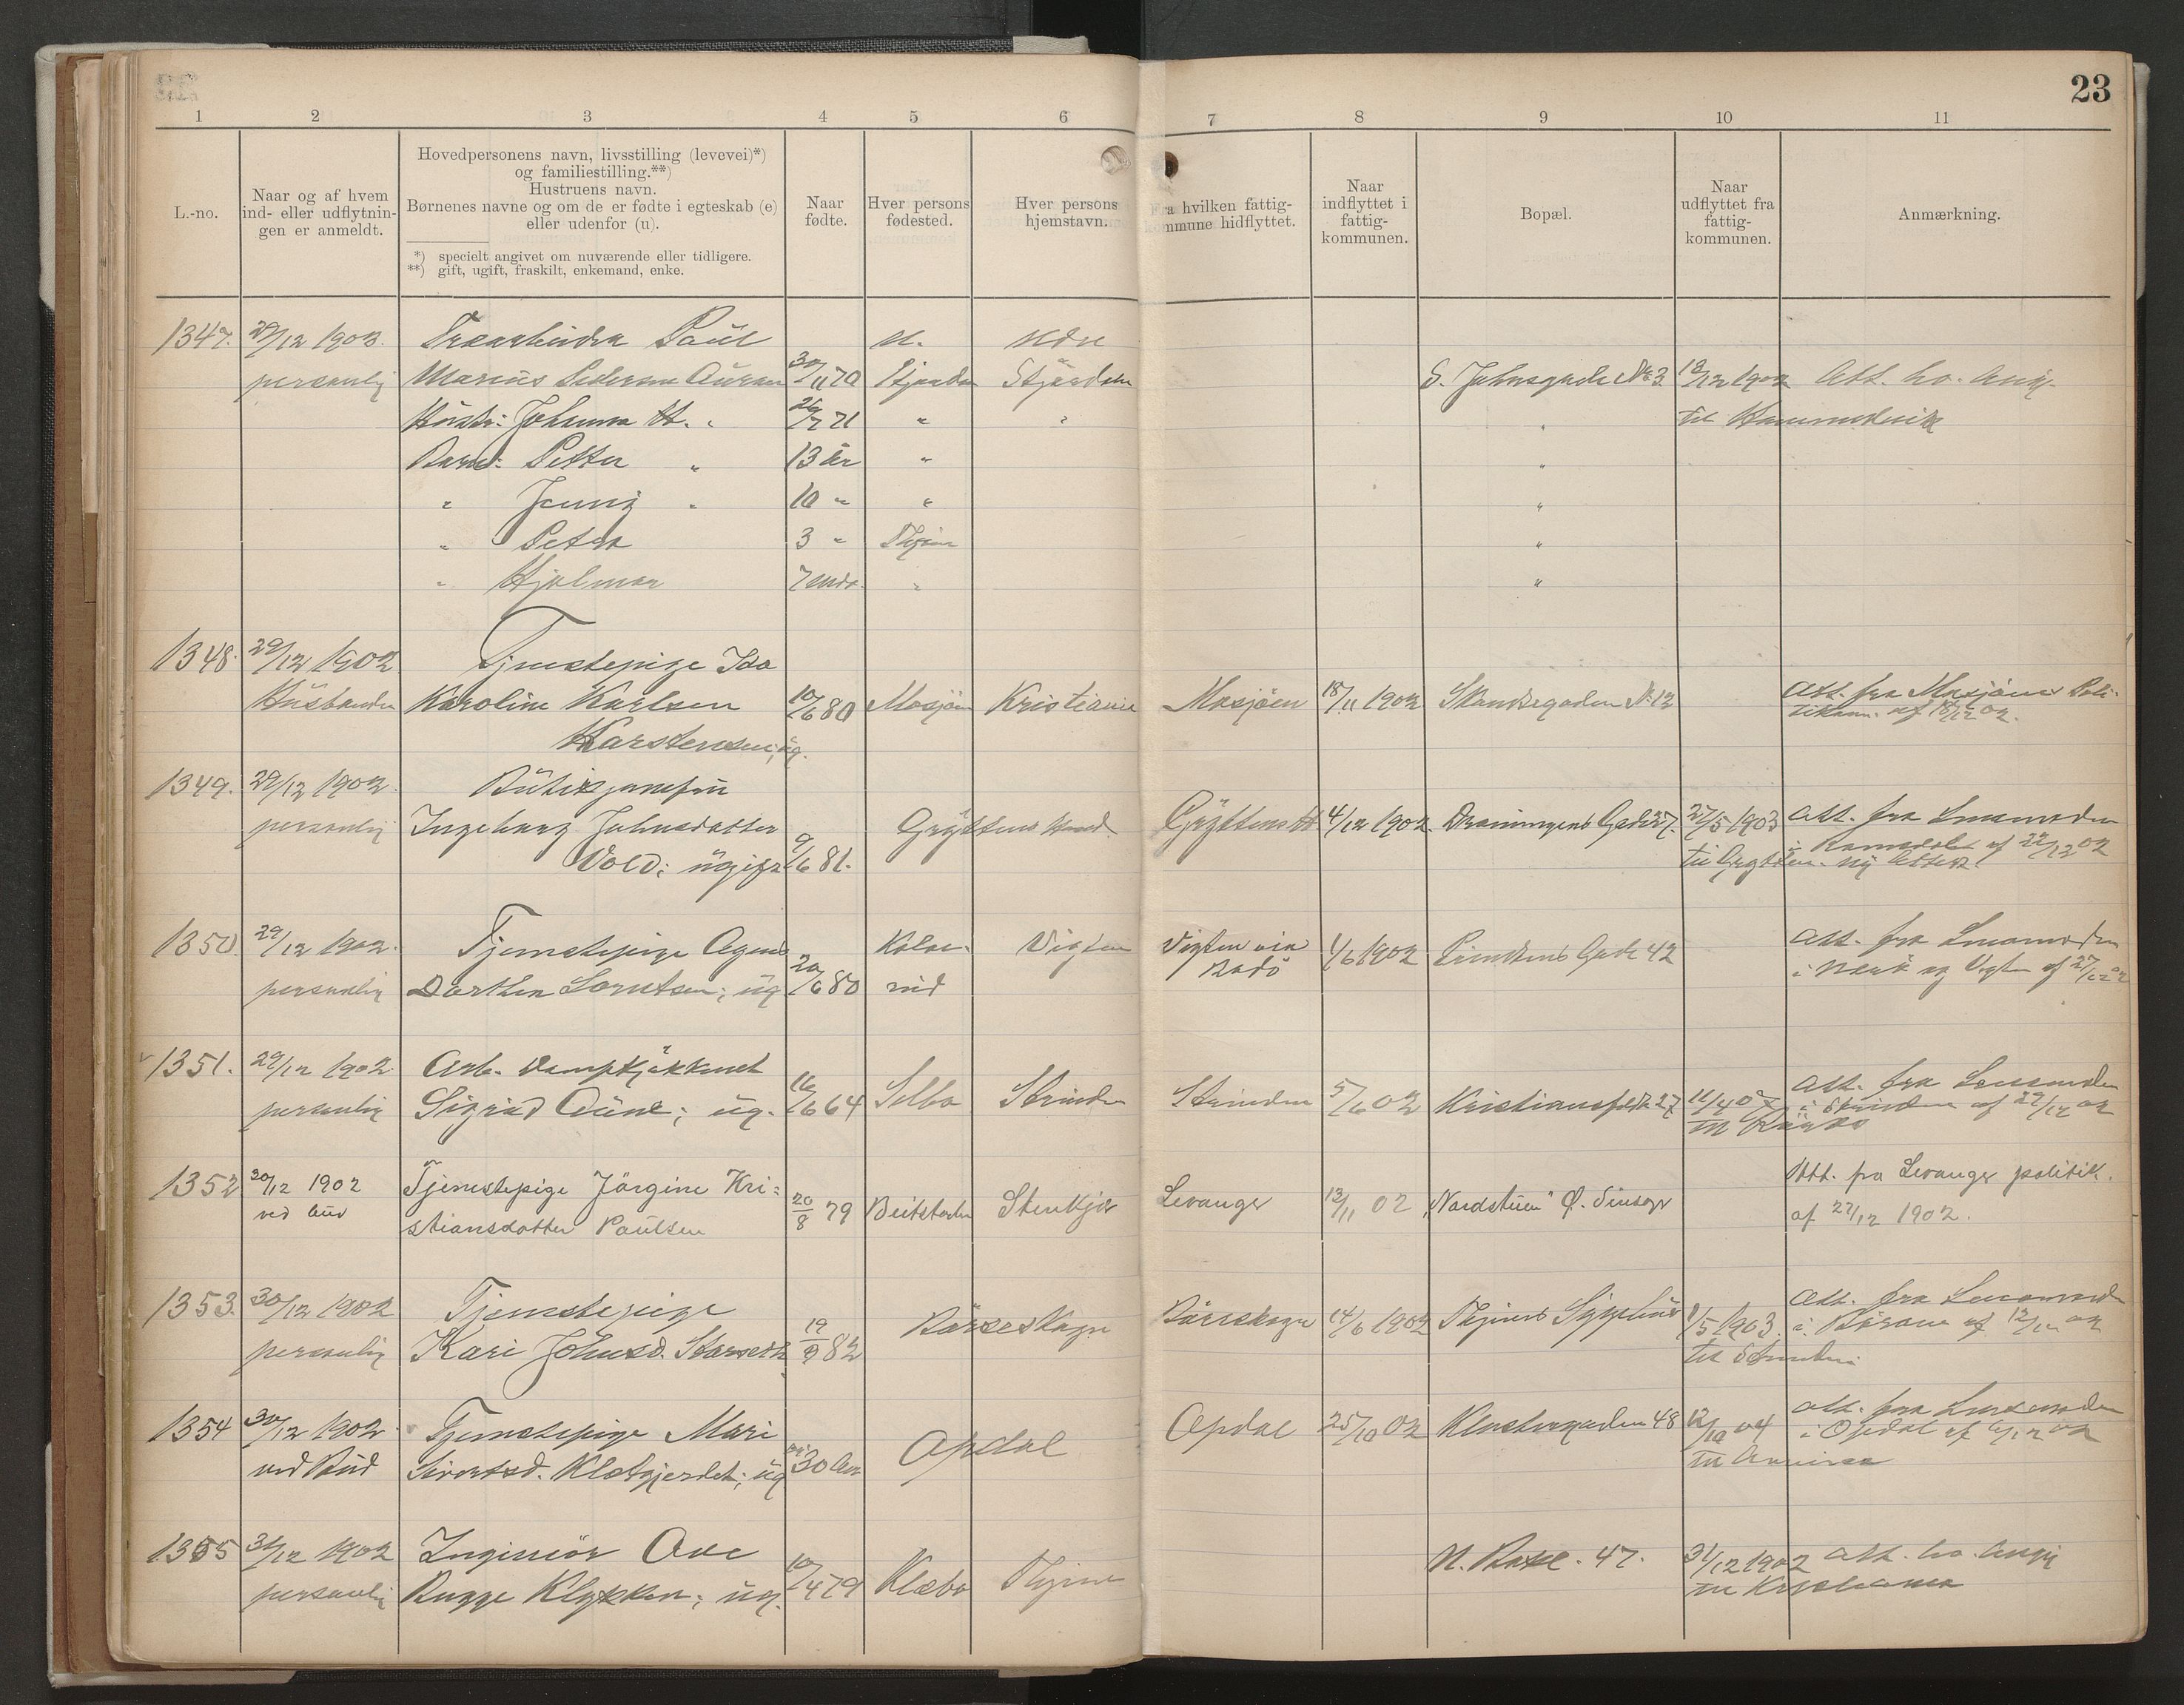 23
1 2 3 4 5 6 7 8 9 10 11
L.-no.
Naar og af hvem
ind- eller udflytnin-
gen er anmeldt.
Hovedpersonens navn, livsstilling (levevei)*)
og familiestilling.**)
Hustruens navn.
Børnenes navne og om de er fødte i egteskab (e)
eller udenfor (u).
*) specielt angivet om nuværende eller tidligere.
**) gift, ugift, fraskilt, enkemand, enke.
Naar
fødte.
Hver persons
fødested.
Hver persons
hjemstavn.
Fra hvilken fattig-
kommune hidflyttet.
Naar
indflyttet i
fattig-
kommunen.
Bopæl.
Naar
udflyttet fra
fattig-
kommunen.
Anmærkning.
1347. 29/12 1902. Paul N. Nedre
personlig Marius Pedersen Auran 30/11 70 Stjørdalen Stjørdalen S. Johnsgade No 3 19/12 1902 Att. hr.
Hustr: Johanna M. " 26/7 71 " " " til
Barn: Petter " 13 år " "
" Jenny " 10 " " "
" Petra 3 " Thjem "
" Hjalmar 7 mdr. " "
1348. 29/12 1902 Tjenestepige Ida
Husbonden Karoline Karlsen 10/6 80 Mosjøen Kristiania Mosjøen 18/11 1902 Skandsegaden No 12 Att. fra Mosjøens Poli-
Karstensen; ug. tikam. af 18/12 02.
1349. 29/12 1902 Butikjomfru
personlig Ingeborg Johnsdatter Gryttens Hered. Gryttens H 4/12 1902. Dronningens Gade 27. 27/5 1903 Att. fra Lensmanden
Vold; ugift 9/6 81. til Grytten. ny Attest i Romsdal af 22/12 02
1350. 29/12 1902. Tjenestepige Agnes Kolve- Vigten Vigten via 1/6 1902 Prindsens Gade 42 Att. fra Lensmanden
personlig Dorthea Lorntsen; ug 20/6 80 reid i Nærø og Vigten af 27/12 02
1351. 29/12 1902 Arb. Dampkjøkkenet
personlig Sigrid Aune; ug. 16/6 64 Selbo Strinden Strinden 5/6 02 Kristiansfeldt 27 11/4 Att. fra Lensmanden
i Strinden af 29/12 02
1352 30/12 1902 Tjenestepige Jörgine Kri- Levanger 13/11 02 "Nordstuen" Ø. Sinsagr Att. fra Levanger politik.
ved bud stiansdatter Paulsen 20/8 79 Beitstaden Stenkjær af 27/12 1902.
1353. 30/12 1902 Tjenestepige Börseskogn Börseskogn 14/6 1902 Thjems Sygehus 1/5 1903. Att. fra Lensmand
personlig Kari Johnsd. 19/9 82 til Strinden i Börsen af 12/12 02
1354 30/12 1902 Tjenestepige Mari Opdal Opdal 25/10 02 Klostergaden 48 12/10 04 Att. fra Lensmanden
ved Bud Sivertsd. Kletgjerdet; ug 30 Aar til Amerika i Opdal af 6/12 02
1355 31/12 1902 Ingeniör Ove N. Bakl. 47. 31/12 1902 Att. hr.
personlig Bugge Klykken; ug. 10/4 79 Klæbo Thjem til Kristiania